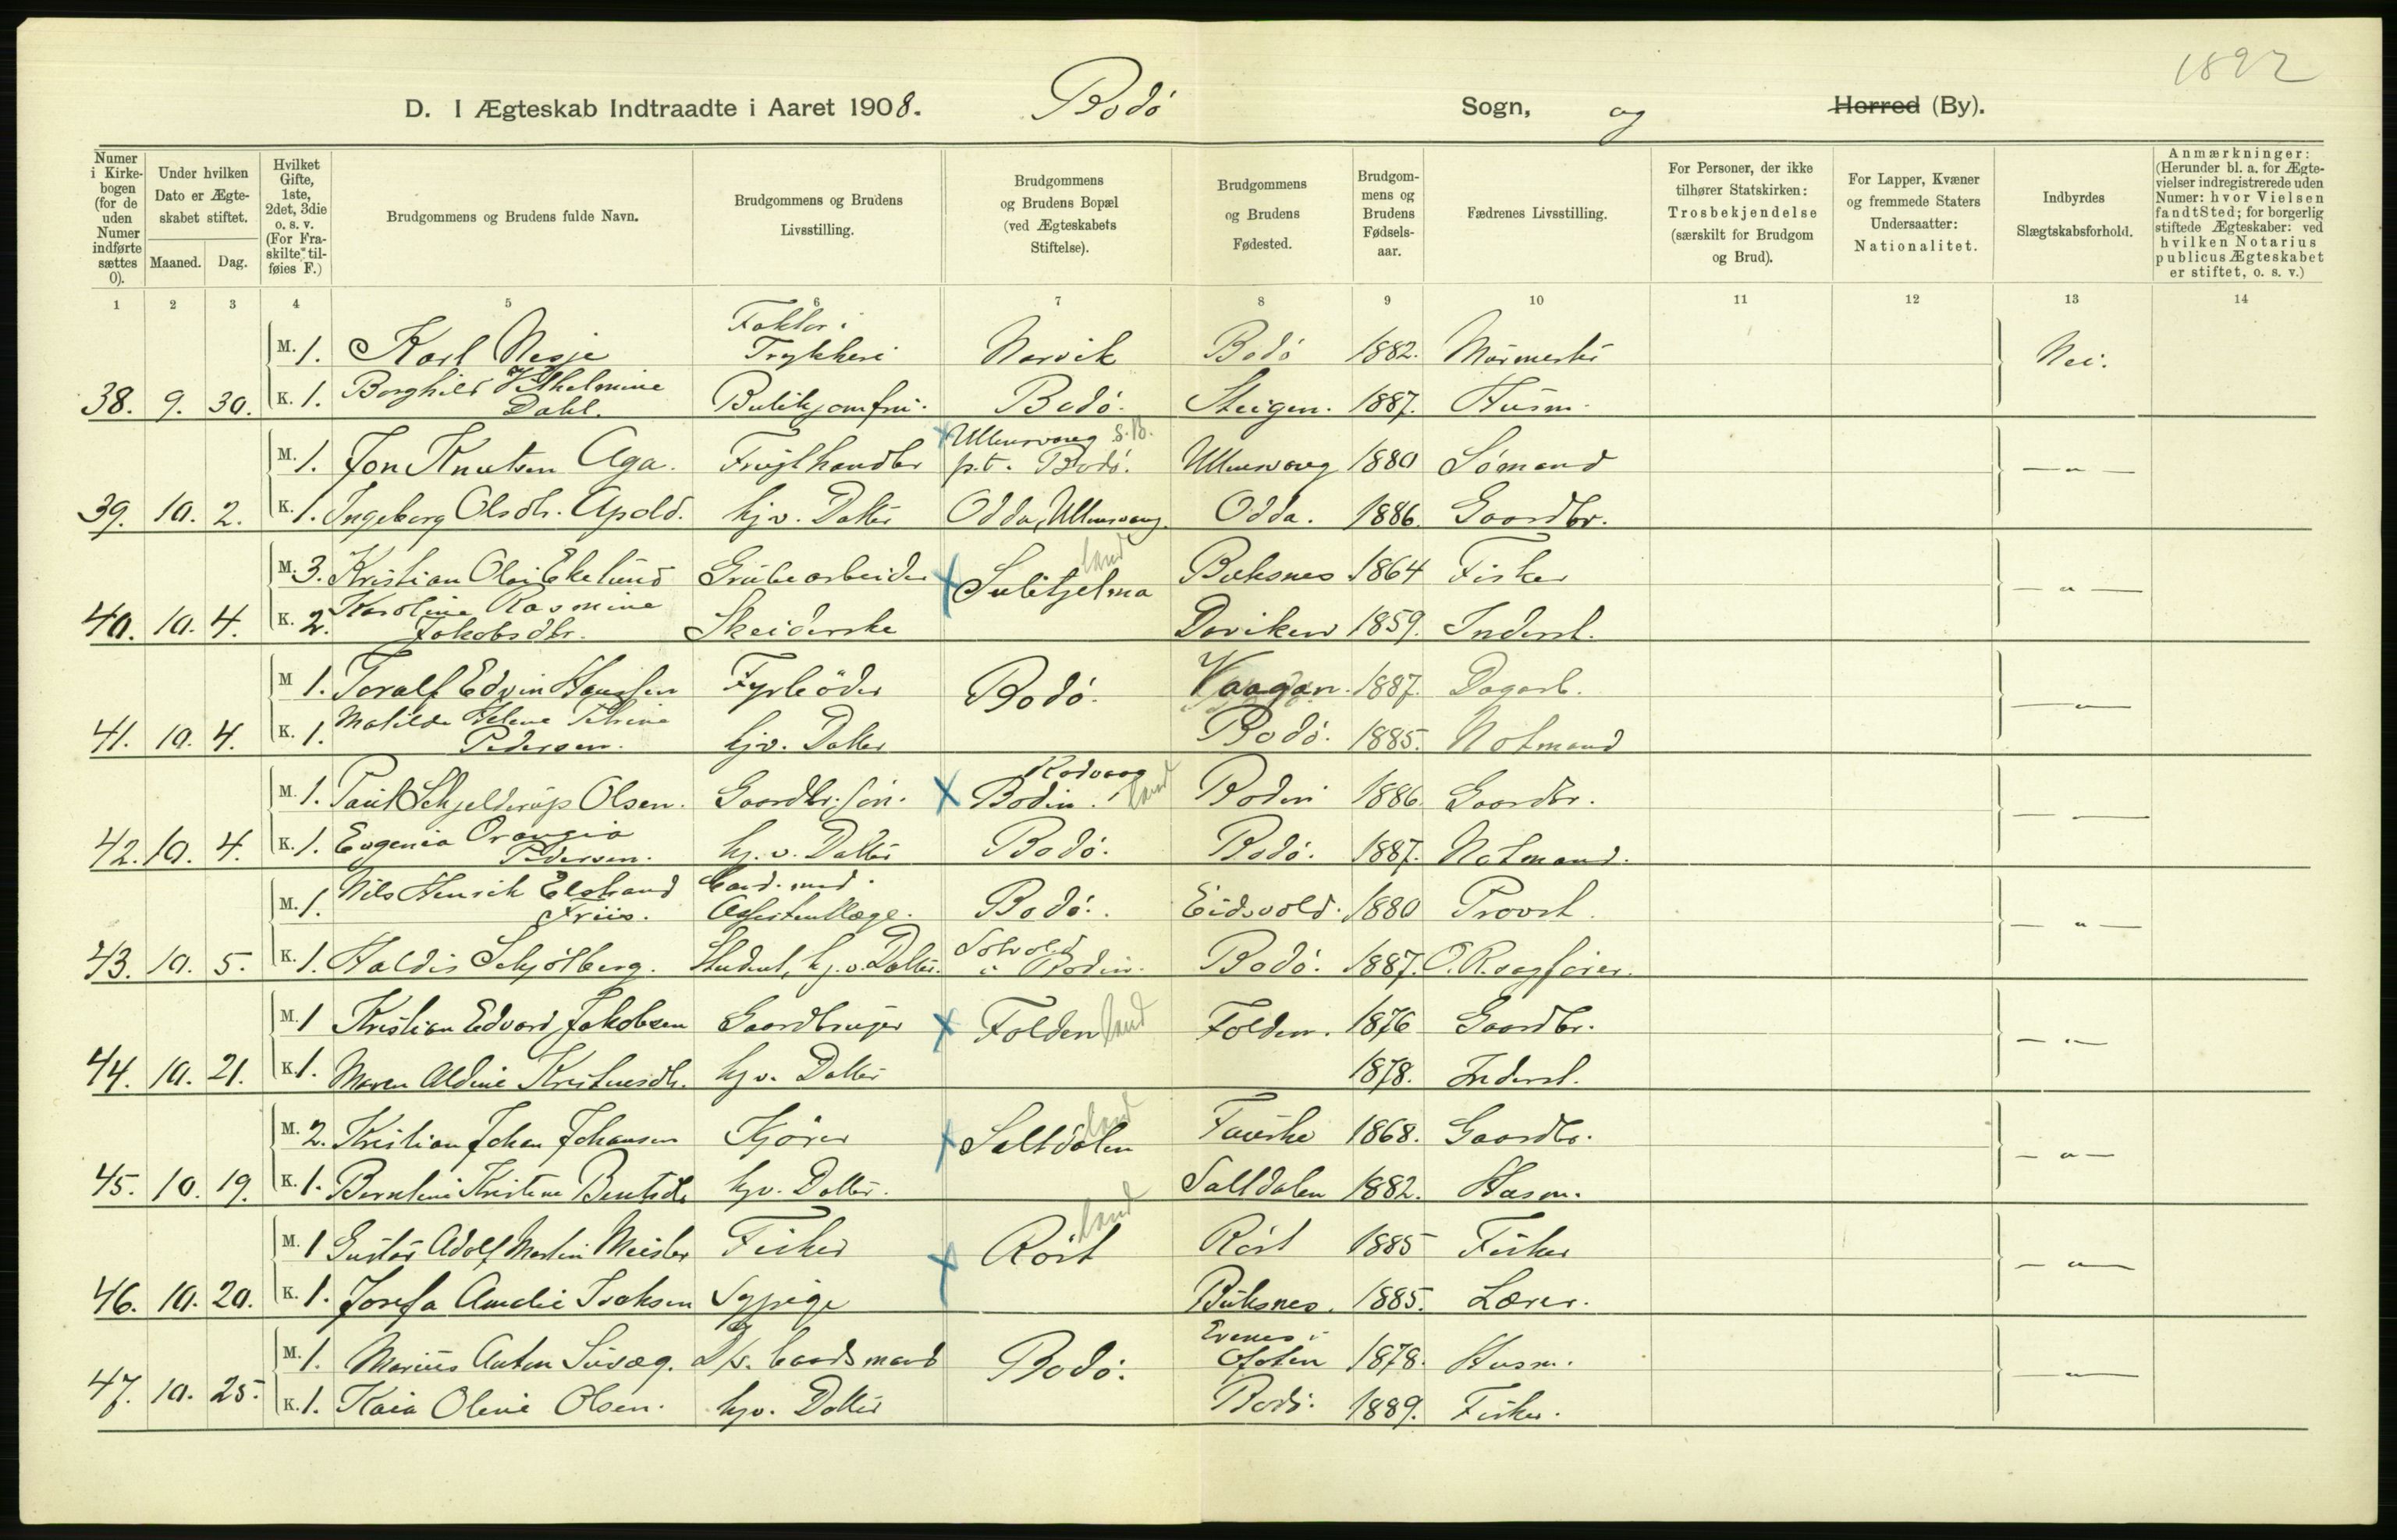 1892
D. I Ægteskab Indtraadte i Aaret 1908. Bodö Sogn, og Herred (By).
Numer i Kirkebogen (for de uden Numer indførte sættes 0).
Under hvilken Dato er Ægteskabet stiftet.
Maaned. Dag.
Hvilket Gifte, 1ste, 2det, 3die o. s. v. (For Fraskilte tilføies F.)
Brudgommens og Brudens fulde Navn.
Brudgommens og Brudens Livsstilling.
Brudgommens og Brudens Bopæl (ved Ægteskabets Stiftelse).
Brudgommens og Brudens Fødested.
Brudgommens og Brudens Fødselsaar.
Fædrenes Livsstilling.
For Personer, der ikke tilhører Statskirken: Trosbekjendelse (særskilt for Brudgom og Brud).
For Lapper, Kvæner og fremmede Staters Undersaatter: Nationalitet.
Indbyrdes Slægtskabsforhold.
Anmærkninger: (Herunder bl. a. for Ægtevielser indregistrerede uden Numer: hvor Vielsen fandt Sted; for borgerlig stiftede Ægteskaber: ved hvilken Notarius publicus Ægteskabet er stiftet, o. s. v.)
1 2 3 4 5 6 7 8 9 10 11 12 13 14
M. 1. Karl Nesje Faktor i Trykkeri Narvik Bodö 1882. Murmester Nei.
38. 9. 30. K. 1. Borghild Vilhelmine Dahl. Butikjomfru. Bodö. Steigen. 1887. Husm.
M. 1. Jon Knutsen Aga. Frugthandler Ullensvang S.B. p.t. Bodö. Ullensvang 1880 Sömand — " —
39. 10. 2. K. 1. Ingeborg Olsdtr. Apold. hjv. Datter Odda, Ullensvang. Odda. 1886. Gaardbr.
M. 3. Kristian Olai Ekelund Grubearbeider Sulitjelma land Buksnes 1864 Fisker — " —
40. 10. 4. K. 2. Karoline Rasmine Jakobsdtr. Skeiderske Daviken 1859. Inderst.
M 1. Toralf Edvin Hanssen Fyrböder Bodö. Vaagan. 1887. Dagarb. — " —
41. 10. 4. K. 1. Matilde Helene Petrine Pedersen. hjv. Datter Bodö. 1885. Notmand
M. 1. Paul Schjelderup Olsen. Gaardbr. sön. Bodin. land Bodin 1886. Gaardbr. — —
42. 10. 4. K. 1. Eugenia Orangia Pedersen. hj. v. Datter Bodö. Bodö. 1887. Notmand.
M. 1. Nils Henrik Elstrand Friis. Cand. med. Assistentlæge. Bodö. Eidsvold. 1880 Provst. — " —
43. 10. 5. K. 1. Haldis Schjölberg. Student, hj. v. Datter. Solvold i Bodin. Bodö. 1887. O.R.sagförer.
M. 1 Kristian Edvard Jakobsen Gaardbruger Folden land Folden. 1876 Gaardbr. — " —
44. 10. 21. K. 1. Maren Aldine Kristensdtr. hjv. Datter 1878. Inderst.
M. 2. Kristian Johan Johansen Kjörer Saltdalen land Fauske 1868. Gaardbr. — " —
45. 10. 19. K. 1. Berntine Kristine Bentsdtr hjv. Datter. Saltdalen 1882. Husm.
M. 1 Gustav Adolf Martin Meisler Fisker Röst land Röst 1885 Fisker — " —
46. 10. 20. K. 1. Josefa Amalie Isaksen Sypige Buksnes. 1885. Lærer.
M. 1. Marius Anton Sivæg. D/s. baadsmand Bodö. Evenes i Ofoten 1878. Husm. — " —
47. 10. 25. K. 1. Kaia Oline Olsen. hjv. Datter Bodö. 1889. Fisker.